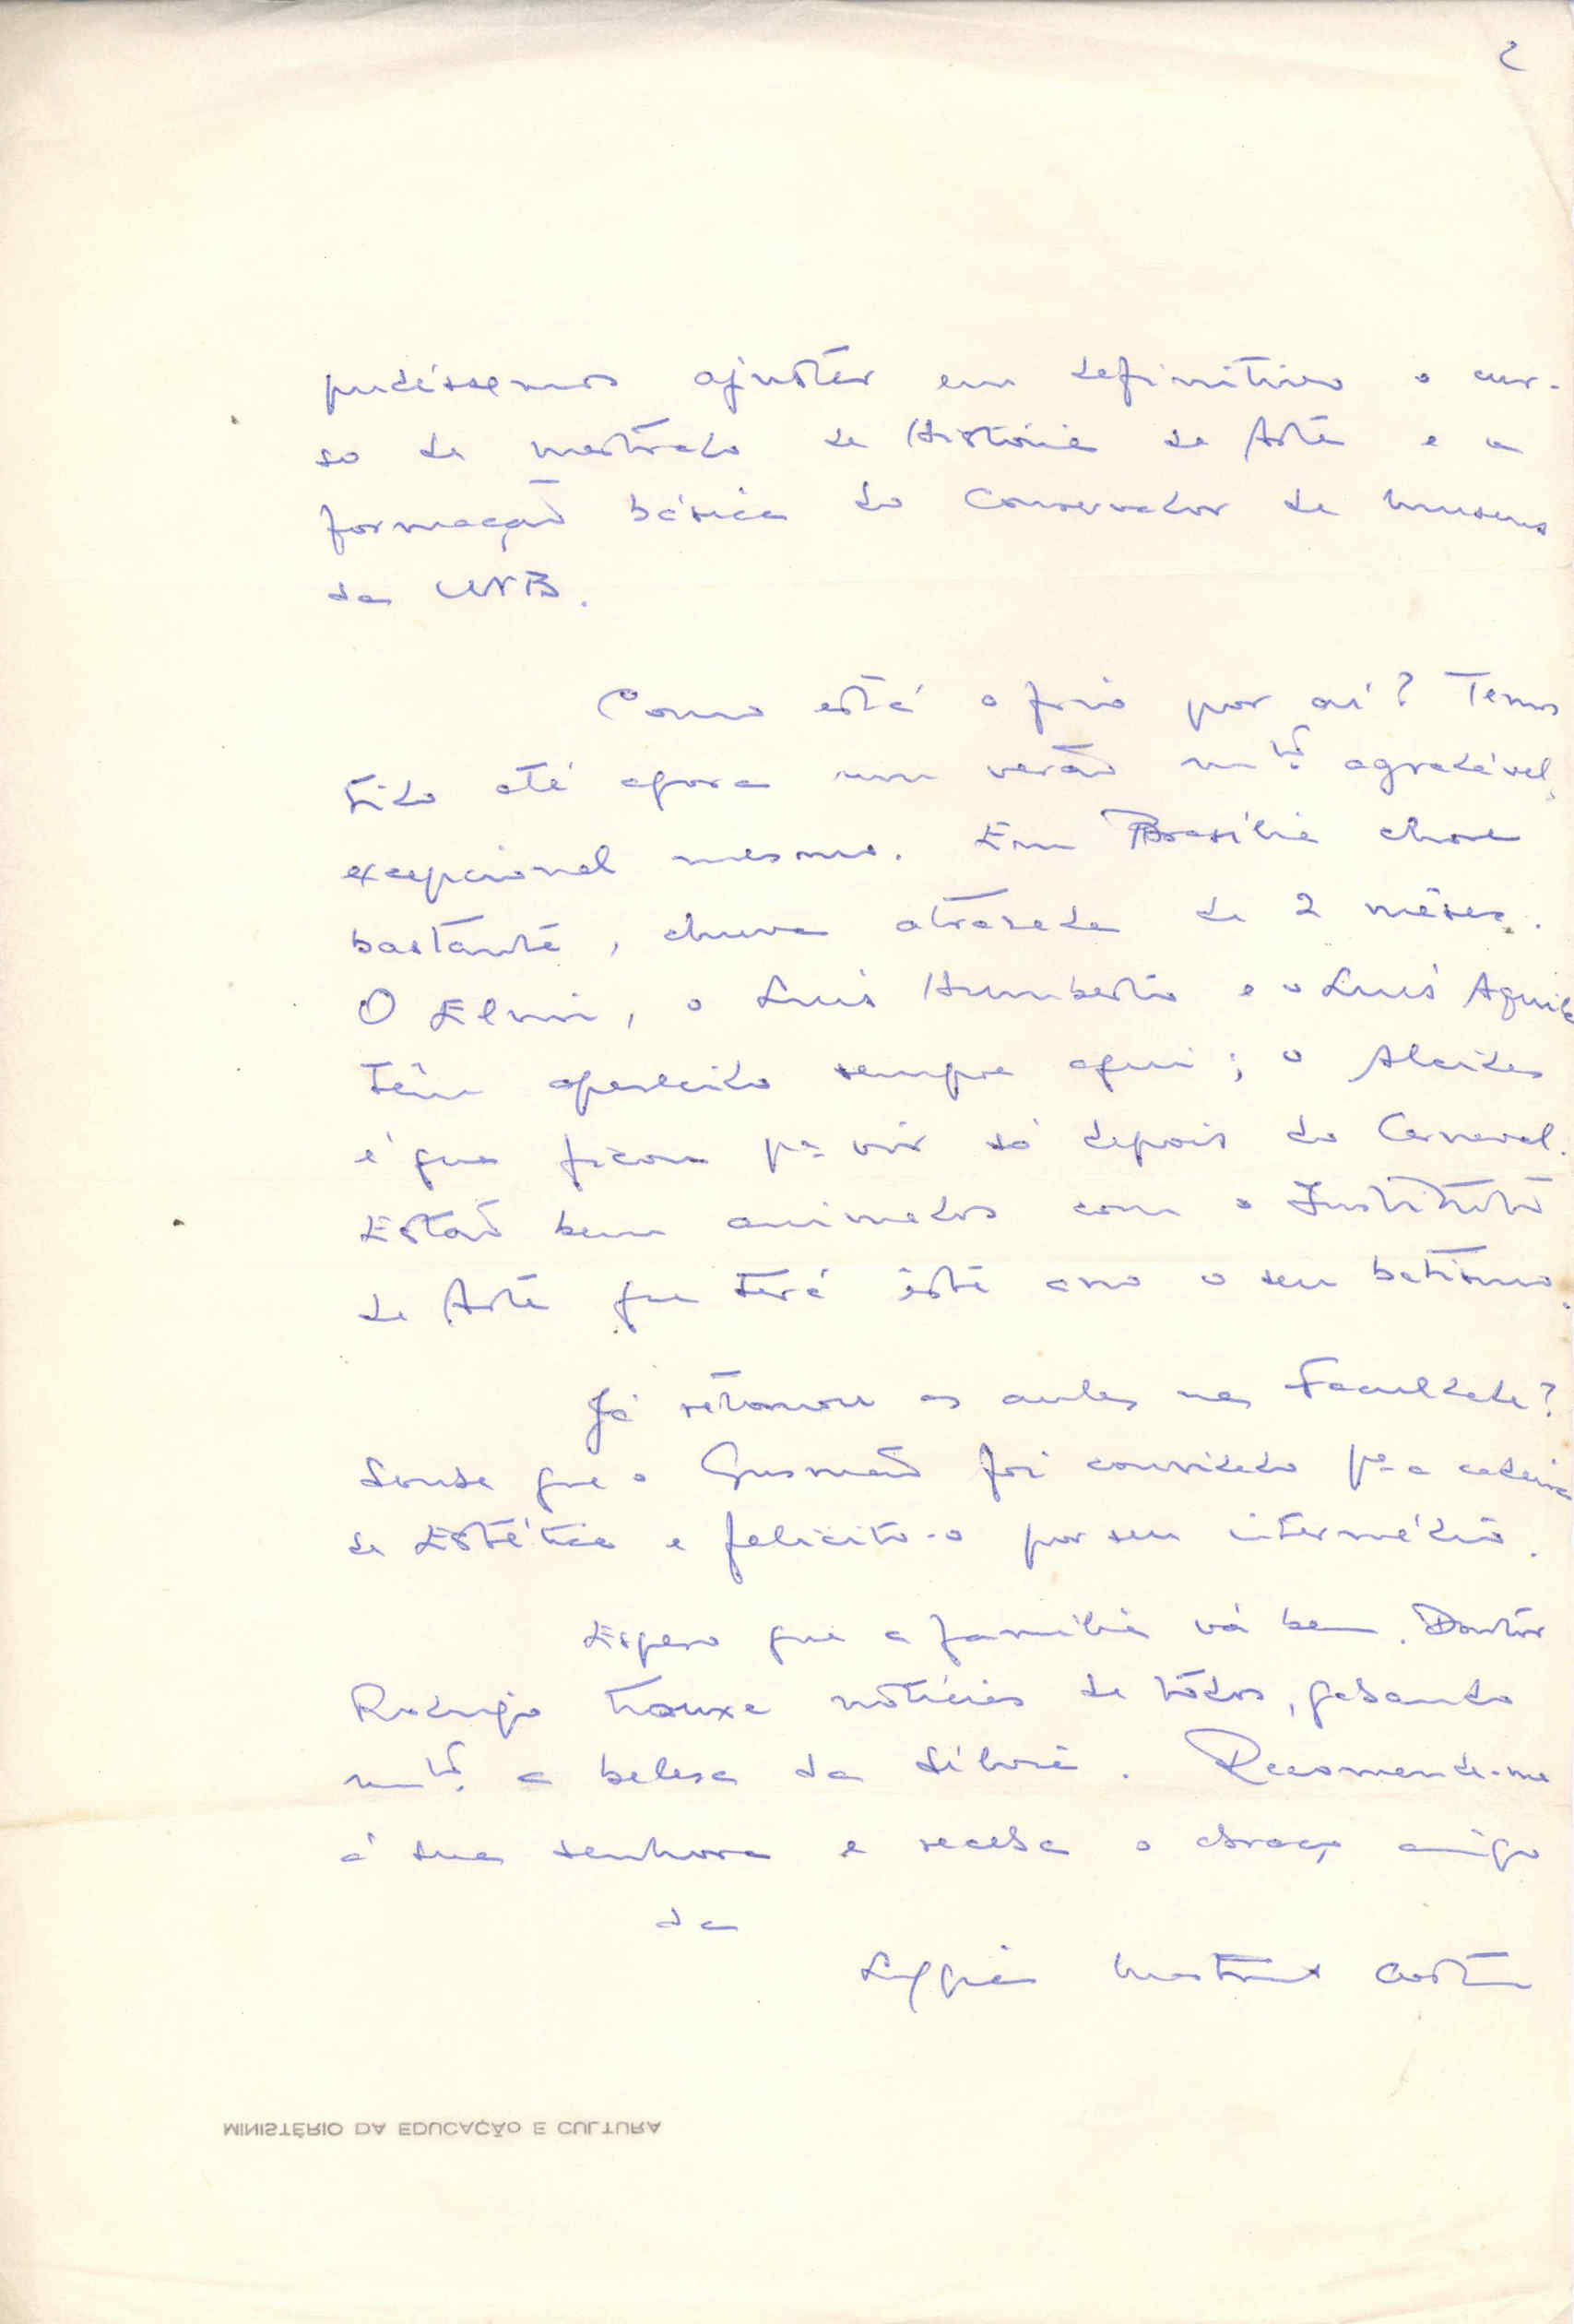 2
pudéssemos ajustar em definitivo o cur-
so de mestrado de História de Arte e a
formação básica do Conservador de Museus
da UNB.
Como está o frio por aí? Temos
tido até agora um verão mtº agradável,
excepcional mesmo. Em Brasília chove
bastante, chuva atrasada de 2 mêses.
O Elvin, o Luis Humberto e o Luis Aquila
têm aparecido sempre aqui; o Alcides
é que ficou pª vir só depois do Carnaval.
Estão bem animados com o Instituto
de Arte que terá êste ano o seu batismo.
Já retomou as aulas na Faculdade?
Soube que o Gusmão foi convidado pª a cadeira
de Estética e felicito-o por seu intermédio.
Espero que a família vá bem. Doutor
Rodrigo trouxe notícias de todos, gabando
mtº a beleza da Sílvia. Recomende-me
à sua senhora e receba o abraço amigo
da
Lygia Martins Costa
MINISTÉRIO DA EDUCAÇÃO E CULTURA